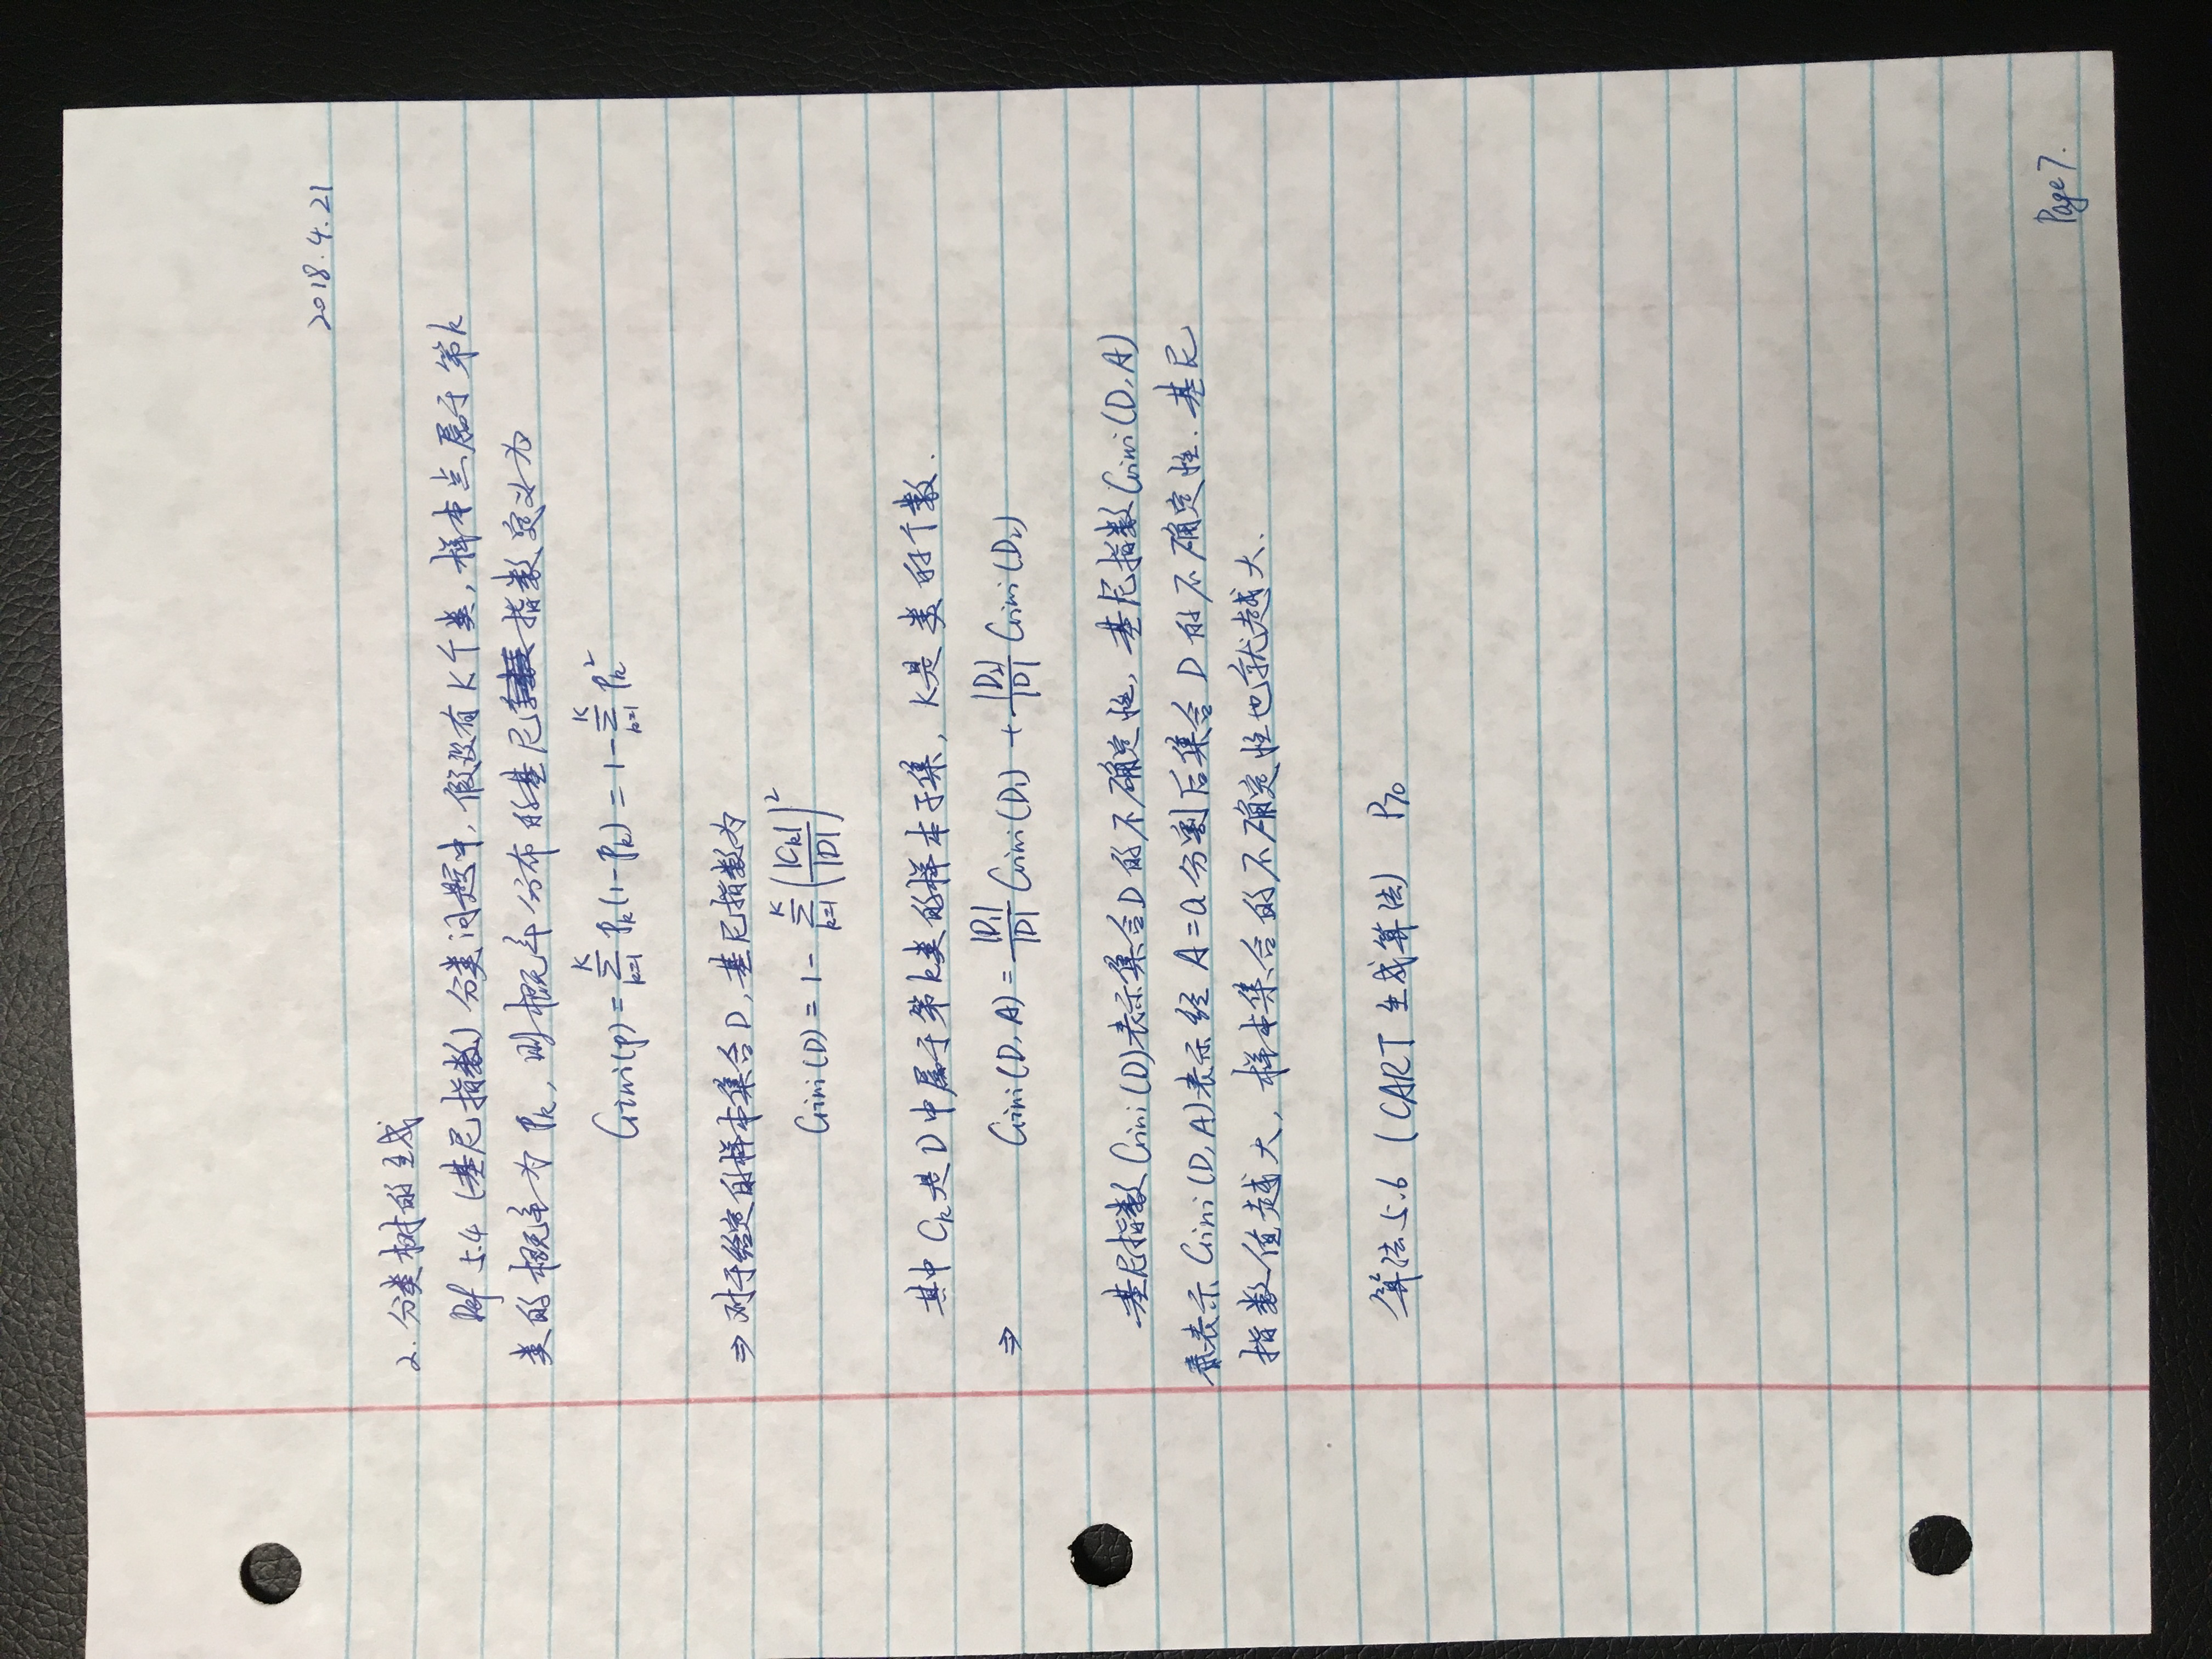 2018.4.21
2. 分类树的生成
Def 5.4 (基尼指数) 分类问题中, 假设有K个类, 样本点属于第k
类的概率为 p_k, 则概率分布的基尼指数定义为
Gini(p) = \sum_{k=1}^{K} p_k(1-p_k) = 1 - \sum_{k=1}^{K} p_k^2
⇒ 对于给定的样本集合D, 基尼指数为
Gini(D) = 1 - \sum_{k=1}^{K} \left(\frac{|C_k|}{|D|}\right)^2
其中 C_k 是D中属于第k类的样本子集, K是类的个数.
⇒ Gini(D, A) = \frac{|D_1|}{|D|} Gini(D_1) + \frac{|D_2|}{|D|} Gini(D_2)
基尼指数 Gini(D) 表示集合D的不确定性, 基尼指数 Gini(D, A)
表示 Gini(D, A) 表示经 A=a 分割后集合 D 的不确定性. 基尼
指数值越大, 样本集合的不确定性也就越大.
算法5.6 (CART 生成算法) P70
Page 7.